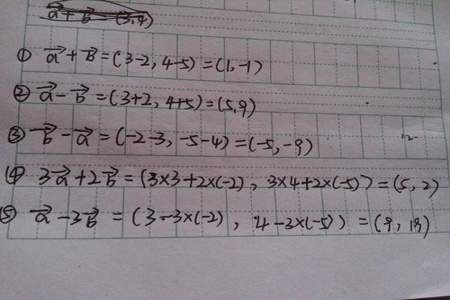 a⃗ + b⃗ = (3,4)
① a⃗ + b⃗ = (3-2, 4-5) = (1, -1)
② a⃗ - b⃗ = (3+2, 4+5) = (5, 9)
③ b⃗ - a⃗ = (-2-3, -5-4) = (-5, -9)
④ 3a⃗ + 2b⃗ = (3×3+2×(-2), 3×4+2×(-5)) = (5, 2)
⑤ a⃗ - 3b⃗ = (3-3×(-2), 4-3×(-5)) = (9, 19)